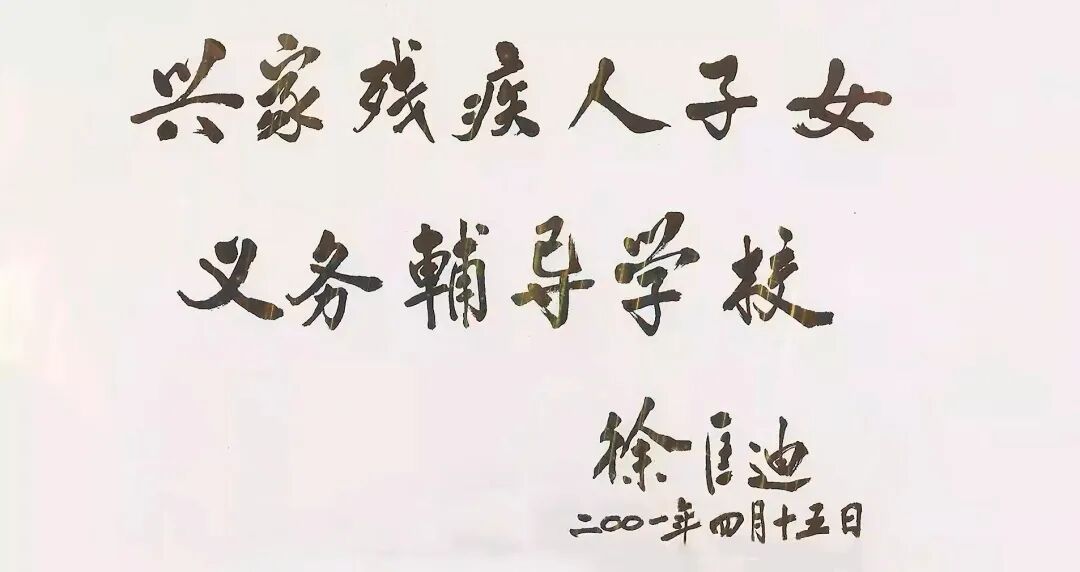 兴家残疾人子女
义务輔导学校
徐匡迪
二〇〇一年四月十五日